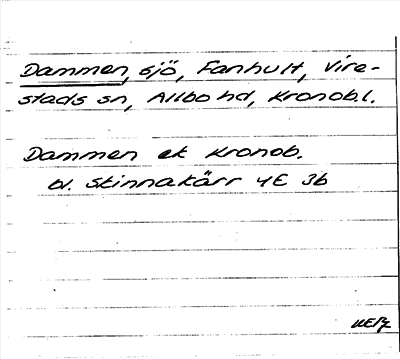 Dammen, sjö, Fanhult, Vire-
stads sn, Allbo hd, Kronob.l.
Dammen ek Kronob.
bl. Skinnakärr 4E 3b